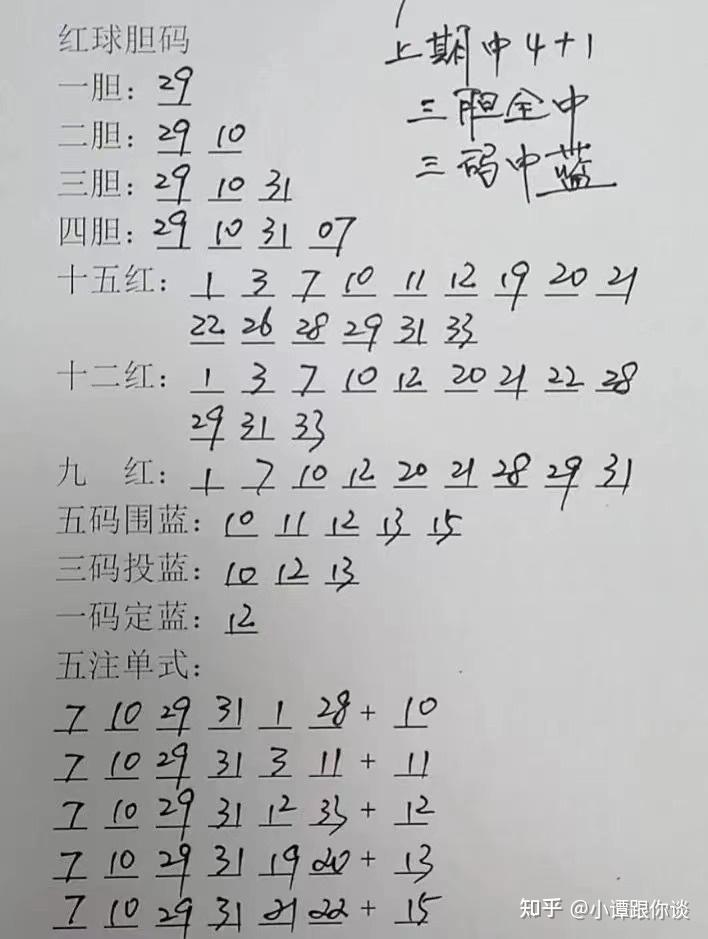 红球胆码
上期中4+1
一胆：29
三胆全中
二胆：29 10
三码中蓝
三胆：29 10 31
四胆：29 10 31 07
十五红：1 3 7 10 11 12 19 20 21
22 26 28 29 31 33
十二红：1 3 7 10 12 20 21 22 28
29 31 33
九 红：1 7 10 12 20 21 28 29 31
五码围蓝：10 11 12 13 15
三码投蓝：10 12 13
一码定蓝：12
五注单式：
7 10 29 31 1 28 + 10
7 10 29 31 3 11 + 11
7 10 29 31 12 33 + 12
7 10 29 31 19 20 + 13
7 10 29 31 21 22 + 15
知乎 @小谭跟你谈